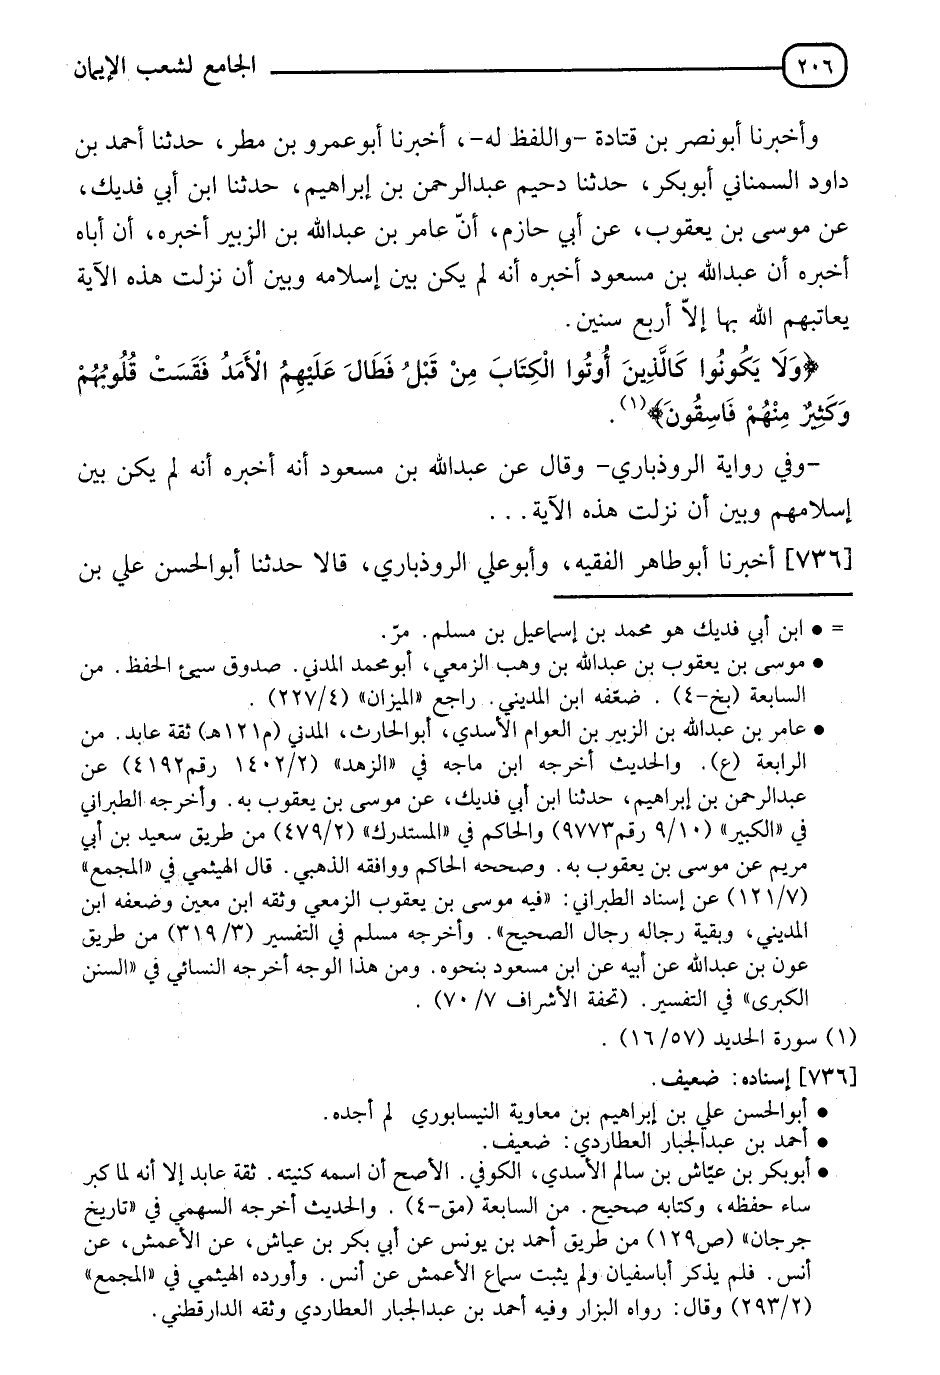 ٢٠٦ الجامع لشعب الإيمان
وأخبرنا أبونصر بن قتادة -واللفظ له-، أخبرنا أبوعمرو بن مطر، حدثنا أحمد بن
داود السمناني أبوبكر، حدثنا دحيم عبدالرحمن بن إبراهيم، حدثنا ابن أبي فديك،
عن موسى بن يعقوب، عن أبي حازم، أنّ عامر بن عبدالله بن الزبير أخبره، أن أباه
أخبره أن عبدالله بن مسعود أخبره أنه لم يكن بين إسلامه وبين أن نزلت هذه الآية
يعاتبهم الله بها إلاّ أربع سنين.
﴿وَلَا يَكُونُوا كَالَّذِينَ أُوتُوا الْكِتَابَ مِنْ قَبْلُ فَطَالَ عَلَيْهِمُ الْأَمَدُ فَقَسَتْ قُلُوبُهُمْ
وَكَثِيرٌ مِنْهُمْ فَاسِقُونَ﴾(١).
-وفي رواية الروذباري- وقال عن عبدالله بن مسعود أنه أخبره أنه لم يكن بين
إسلامهم وبين أن نزلت هذه الآية...
[٧٣٦] أخبرنا أبوطاهر الفقيه، وأبوعلي الروذباري، قالا حدثنا أبوالحسن علي بن
= • ابن أبي فديك هو محمد بن إسماعيل بن مسلم. مرّ.
• موسى بن يعقوب بن عبدالله بن وهب الزمعي، أبومحمد المدني. صدوق سيئ الحفظ. من
السابعة (بخ-٤). ضعّفه ابن المديني. راجع «الميزان» (٢٢٧/٤).
• عامر بن عبدالله بن الزبير بن العوام الأسدي، أبوالحارث، المدني (م١٢١هـ) ثقة عابد. من
الرابعة (ع). والحديث أخرجه ابن ماجه في «الزهد» (١٤٠٢/٢ رقم٤١٩٢) عن
عبدالرحمن بن إبراهيم، حدثنا ابن أبي فديك، عن موسى بن يعقوب به. وأخرجه الطبراني
في «الكبير» (٩/١٠ رقم٩٧٧٣) والحاكم في «المستدرك» (٤٧٩/٢) من طريق سعيد بن أبي
مريم عن موسى بن يعقوب به. وصححه الحاكم ووافقه الذهبي. قال الهيثمي في «المجمع»
(١٢١/٧) عن إسناد الطبراني: «فيه موسى بن يعقوب الزمعي وثقه ابن معين وضعفه ابن
المديني، وبقية رجاله رجال الصحيح». وأخرجه مسلم في التفسير (٣١٩/٣) من طريق
عون بن عبدالله عن أبيه عن ابن مسعود بنحوه. ومن هذا الوجه أخرجه النسائي في «السنن
الكبرى» في التفسير. (تحفة الأشراف ٧٠/٧).
(١) سورة الحديد (١٦/٥٧).
[٧٣٦] إسناده: ضعيف.
• أبوالحسن علي بن إبراهيم بن معاوية النيسابوري لم أجده.
• أحمد بن عبدالجبار العطاردي: ضعيف.
• أبوبكر بن عيّاش بن سالم الأسدي، الكوفي. الأصح أن اسمه كنيته. ثقة عابد إلا أنه لما كبر
ساء حفظه، وكتابه صحيح. من السابعة (مق-٤). والحديث أخرجه السهمي في «تاريخ
جرجان» (ص١٢٩) من طريق أحمد بن يونس عن أبي بكر بن عياش، عن الأعمش، عن
أنس. فلم يذكر أباسفيان ولم يثبت سماع الأعمش عن أنس. وأورده الهيثمي في «المجمع»
(٢٩٣/٢) وقال: رواه البزار وفيه أحمد بن عبدالجبار العطاردي وثقه الدارقطني.